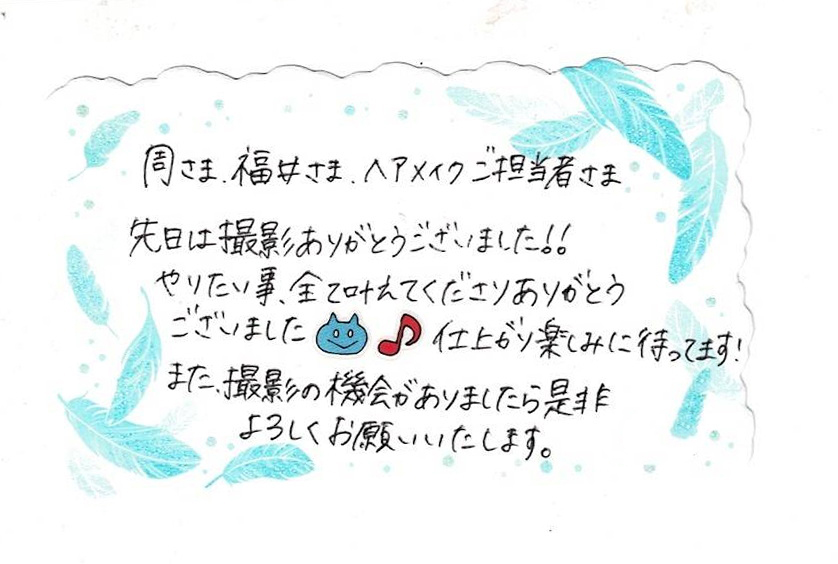 周さま、福井さま、ヘアメイクご担当者さま
先日は撮影ありがとうございました!!
やりたい事、全て叶えてくださりありがとう
ございました 仕上がり楽しみに待ってます!
また、撮影の機会がありましたら是非
よろしくお願いいたします。